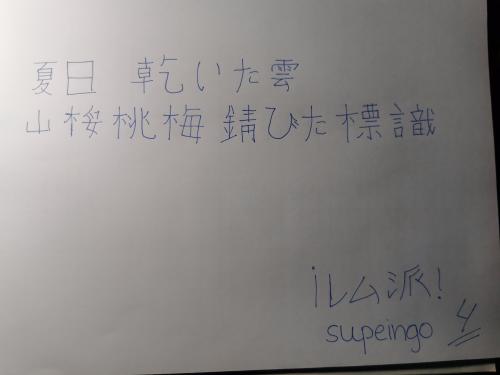 夏日 乾いた雲
山桜桃梅 錆びた標識
iルム派!
supeingo 4